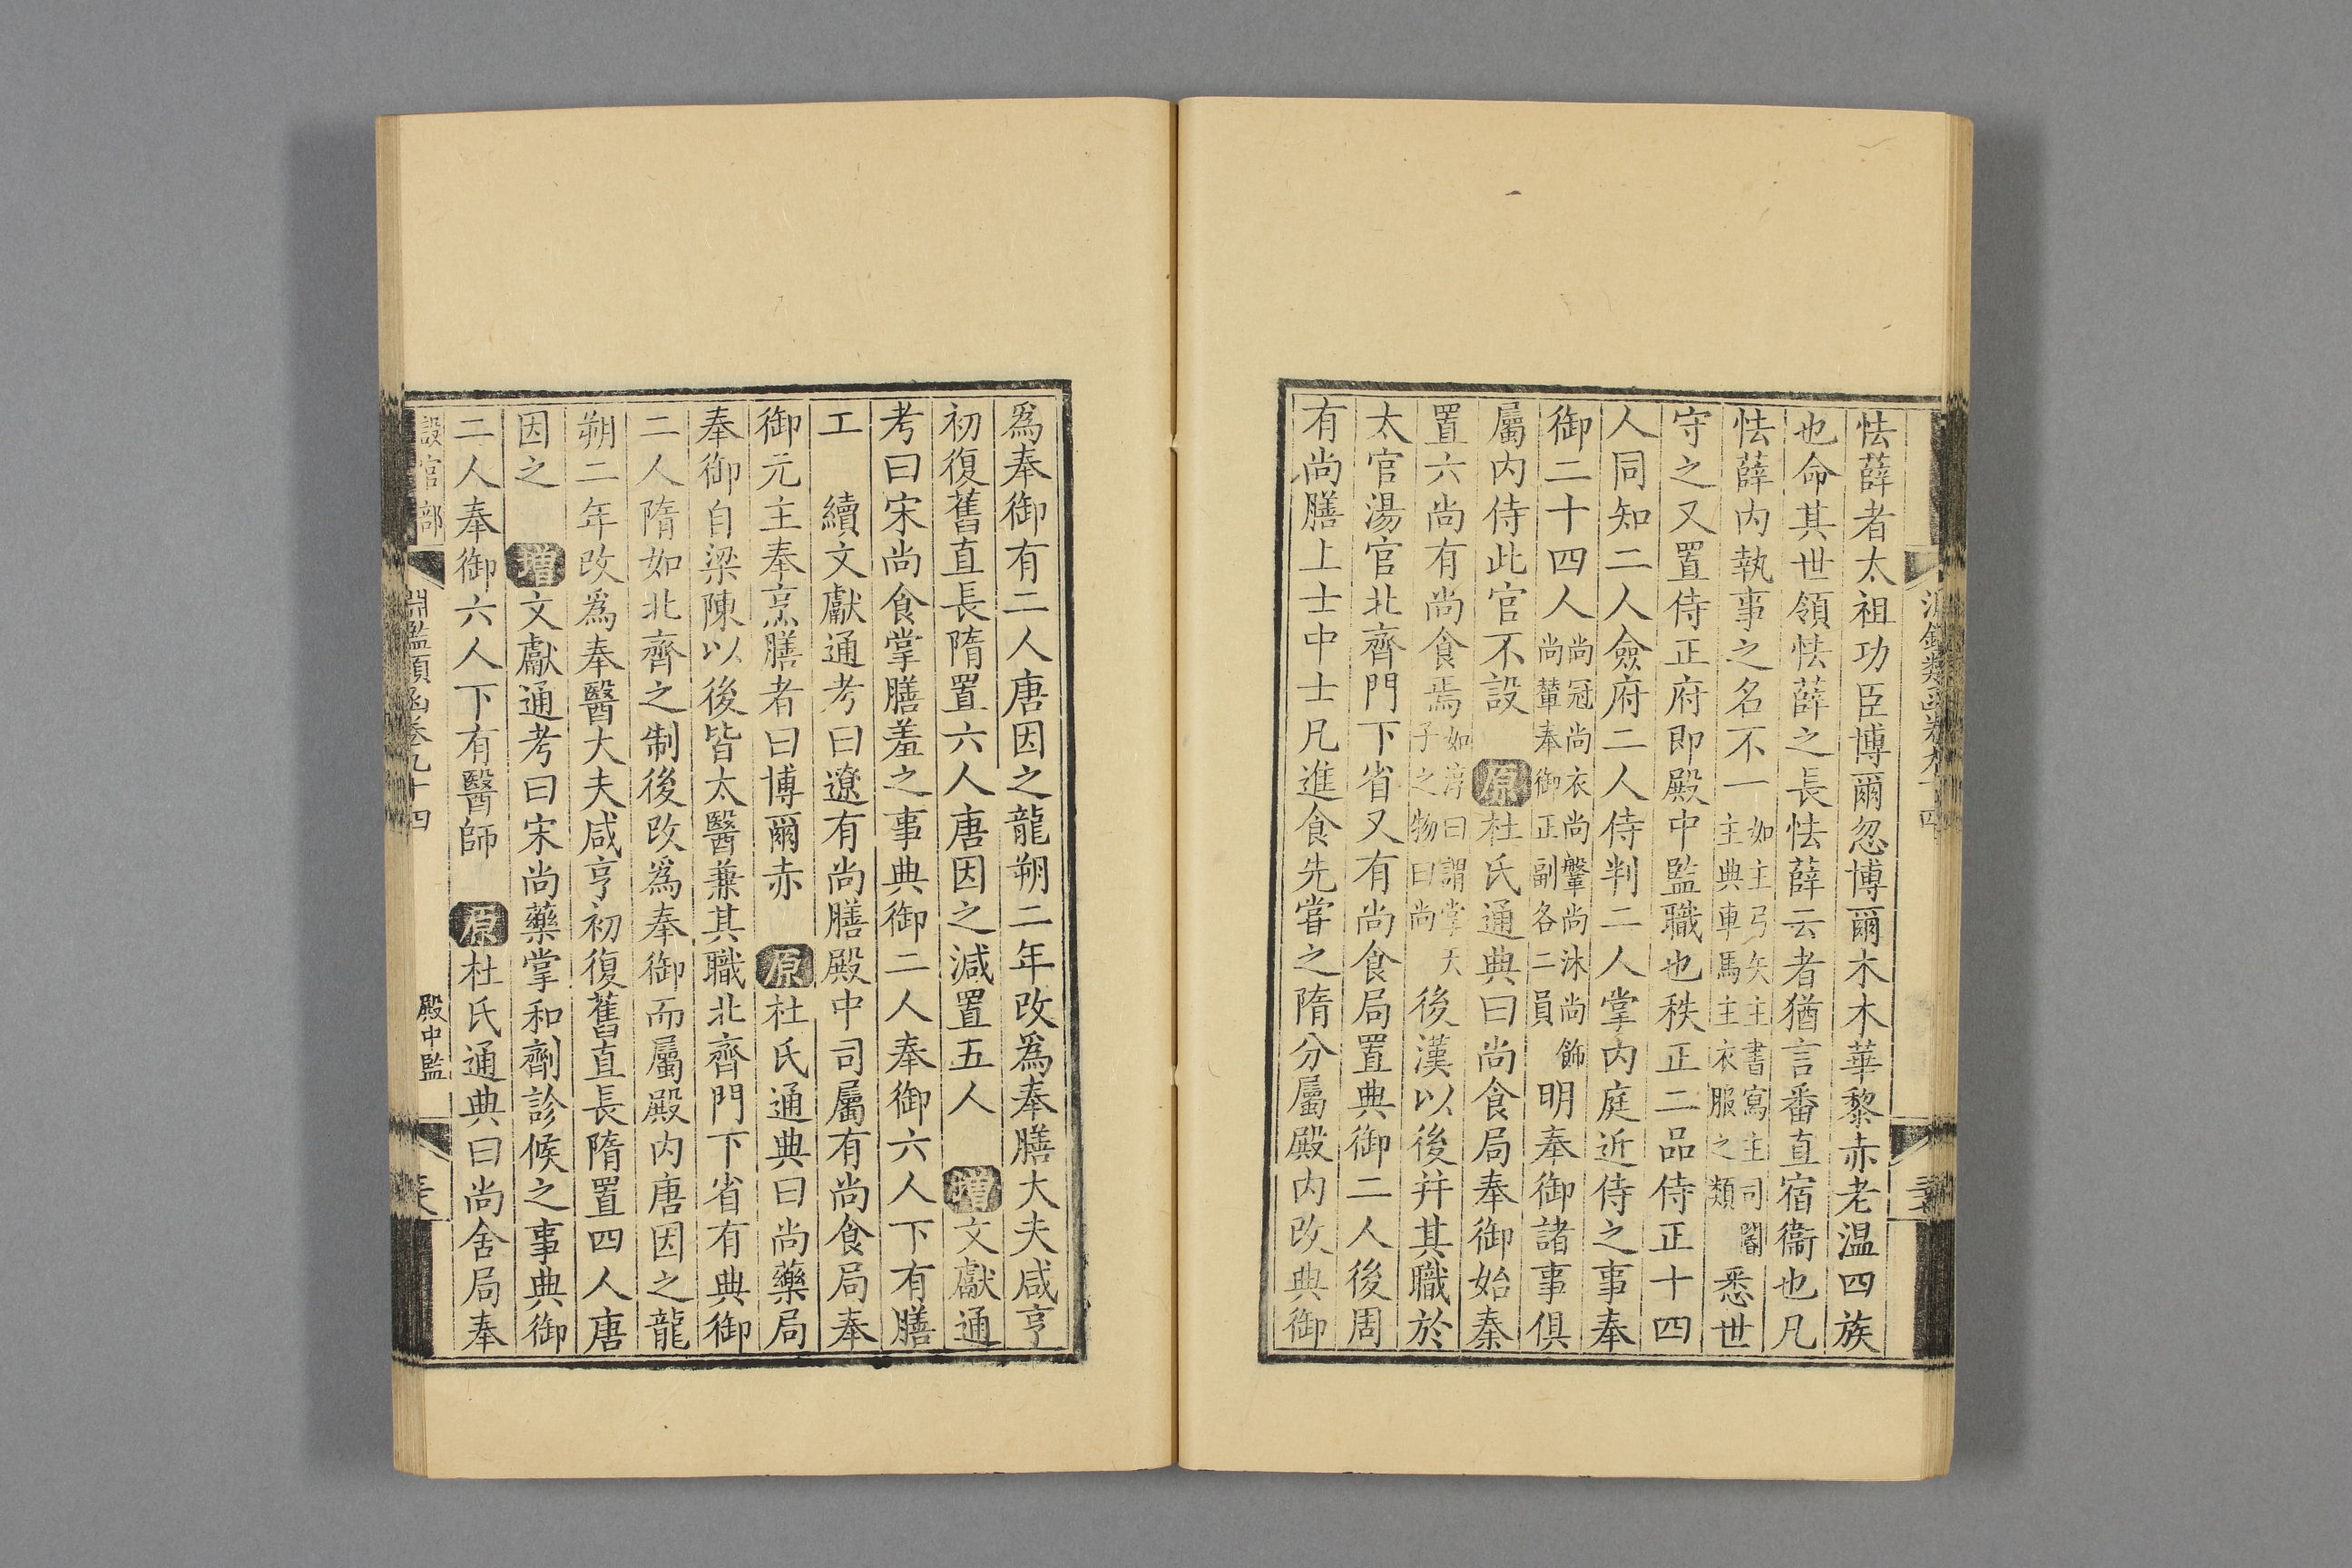 怯薛者太祖功臣博爾忽博爾木木華黎赤老温四族
也命其世領怯薛之長怯薛云者猶言番直宿衞也凡
怯薛内執事之名不一如主弓矢主書寫主司閽主典車馬主衣服之類悉世
守之又置侍正府即殿中監職也秩正二品侍正十四
人同知二人僉府二人侍判二人掌内庭近侍之事奉
御二十四人尚冠尚衣尚鞶尚沐尚飾尚輦奉御正副各二員明奉御諸事俱
屬内侍此官不設 原杜氏通典曰尚食局奉御始秦
置六尚有尚食焉如淳曰謂掌天子之物曰尚後漢以後并其職於
太官湯官北齊門下省又有尚食局置典御二人後周
有尚膳上士中士凡進食先甞之隋分屬殿内改典御
爲奉御有二人唐因之龍朔二年改爲奉膳大夫咸亨
初復舊直長隋置六人唐因之減置五人 增文獻通
考曰宋尚食掌膳羞之事典御二人奉御六人下有膳
工 續文獻通考曰遼有尚膳殿中司屬有尚食局奉
御元主奉烹膳者曰博爾赤 原杜氏通典曰尚藥局
奉御自梁陳以後皆太醫兼其職北齊門下省有典御
二人隋如北齊之制後改爲奉御而屬殿内唐因之龍
朔二年改爲奉醫大夫咸亨初復舊直長隋置四人唐
因之 增文獻通考曰宋尚藥掌和劑診候之事典御
二人奉御六人下有醫師 原杜氏通典曰尚舍局奉
設官部 淵鑑類函卷九十四 殿中監